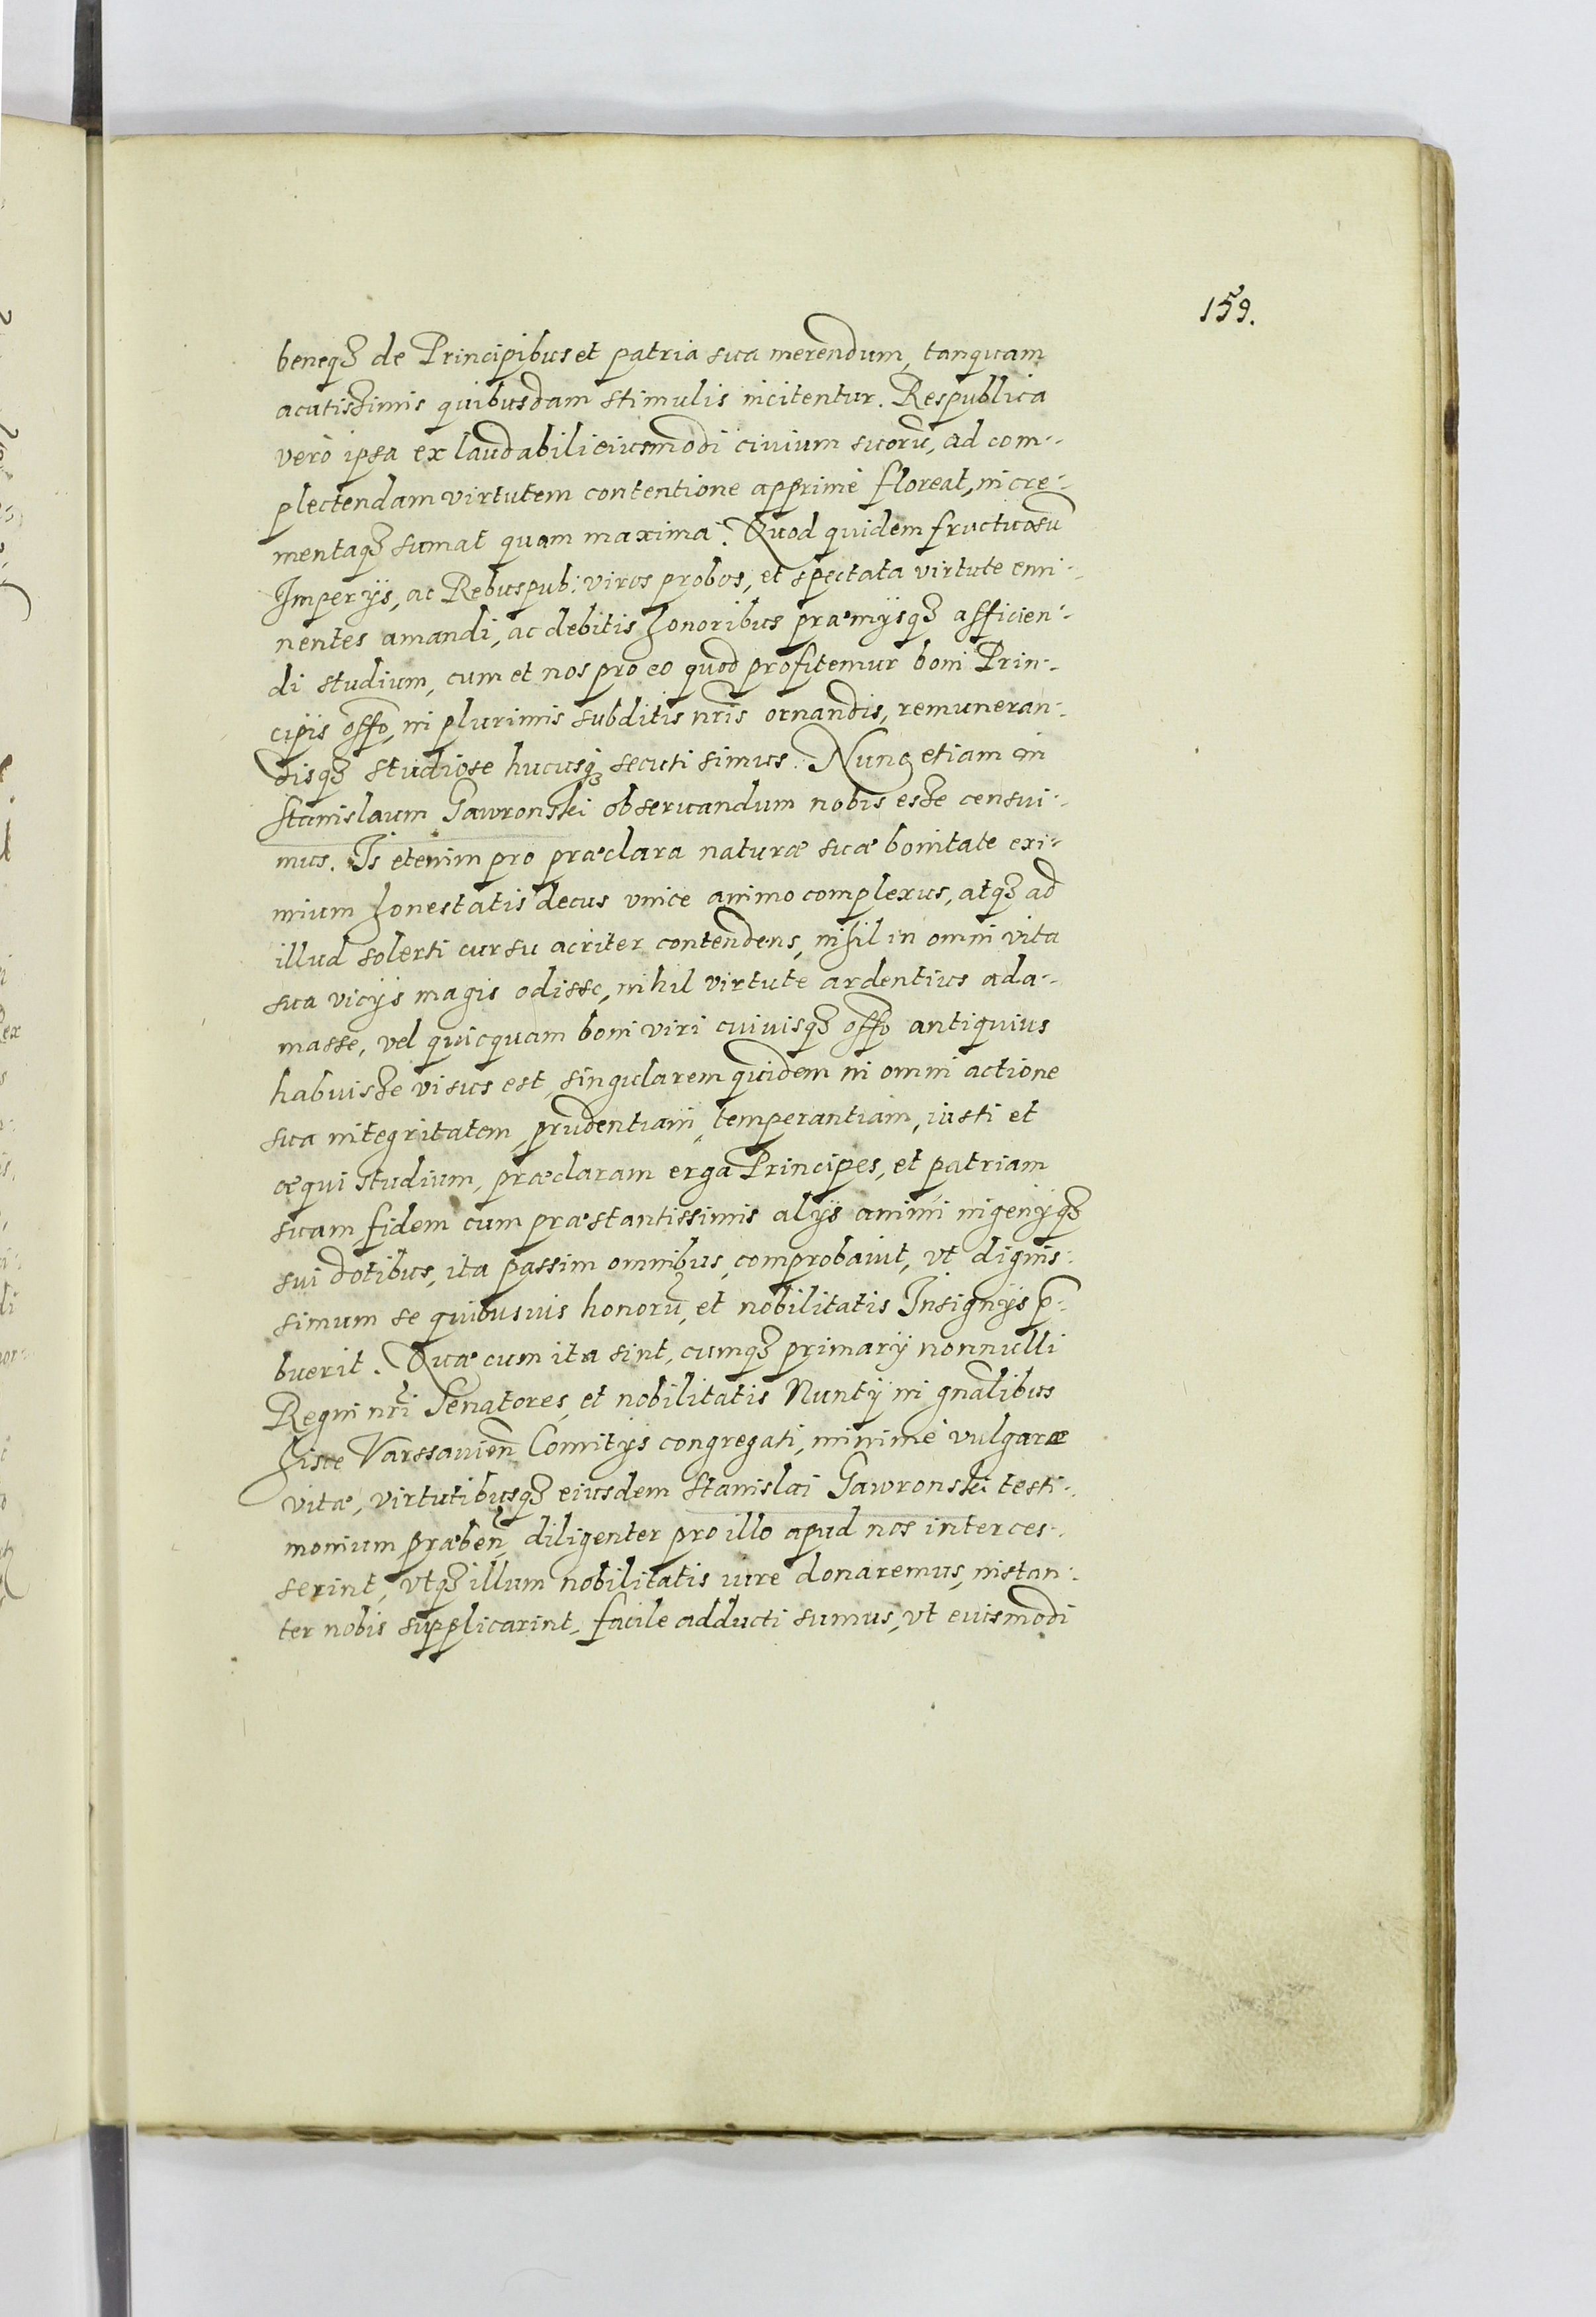 159.
beneqȝ de Principibus et patria sua merendum, tanquam
acutissimis quibusdam stimulis incitentur. Respublica
verò ipsa ex laudabili eiusmodi ciuium suorū, ad com-
plectendam virtutem contentione apprimè floreat, incre-
mentaqȝ sumat quam maxima. Quod quidem fructuosū
Imperijs, ac Rebuspub: viros probos, et spectata virtute emi-
nentes amandi, ac debitis honoribus præmijsqȝ afficien-
di studium, cum et nos pro eo quod profitemur boni Prin-
cipis offo, in plurimis subditis nr̄is ornandis, remuneran-
disqȝ studiose hucusqȝ secuti simus. Nunc etiam in
Stanislaum Gawronski obseruandum nobis esse censui-
mus. Is etenim pro præclara naturæ suæ bonitate exi-
mium honestatis decus vnice animo complexus, atqȝ ad
illud solerti cursu acriter contendens, nihil in omni vita
sua vicijs magis odisse, nihil virtute ardentius ada-
masse, vel quicquam boni viri cuiuisqȝ offo antiquius
habuisse visus est, singularem quidem in omni actione
sua integritatem, prudentiam, temperantiam, iusti et
æqui studium, præclaram erga Principes, et patriam
suam fidem cum præstantissimis alijs animi ingenijqȝ
sui dotibus, ita passim omnibus, comprobauit, vt dignis-
simum se quibusuis honorū, et nobilitatis Insignijs p̄-
buerit. Quæ cum ita sint, cumqȝ primarij nonnulli
Regni nr̄i Senatores, et nobilitatis Nuntij in gn̄alibus
hisce Varssauien̄ Comitijs congregati, minimè vulgaræ
vitæ, virtutibusqȝ eiusdem Stanislai Gawronski testi-
monium præben̄, diligenter pro illo apud nos interces-
serint, vtqȝ illum nobilitatis iure donaremus, instan-
ter nobis supplicarint, facile adducti sumus, vt euismodi